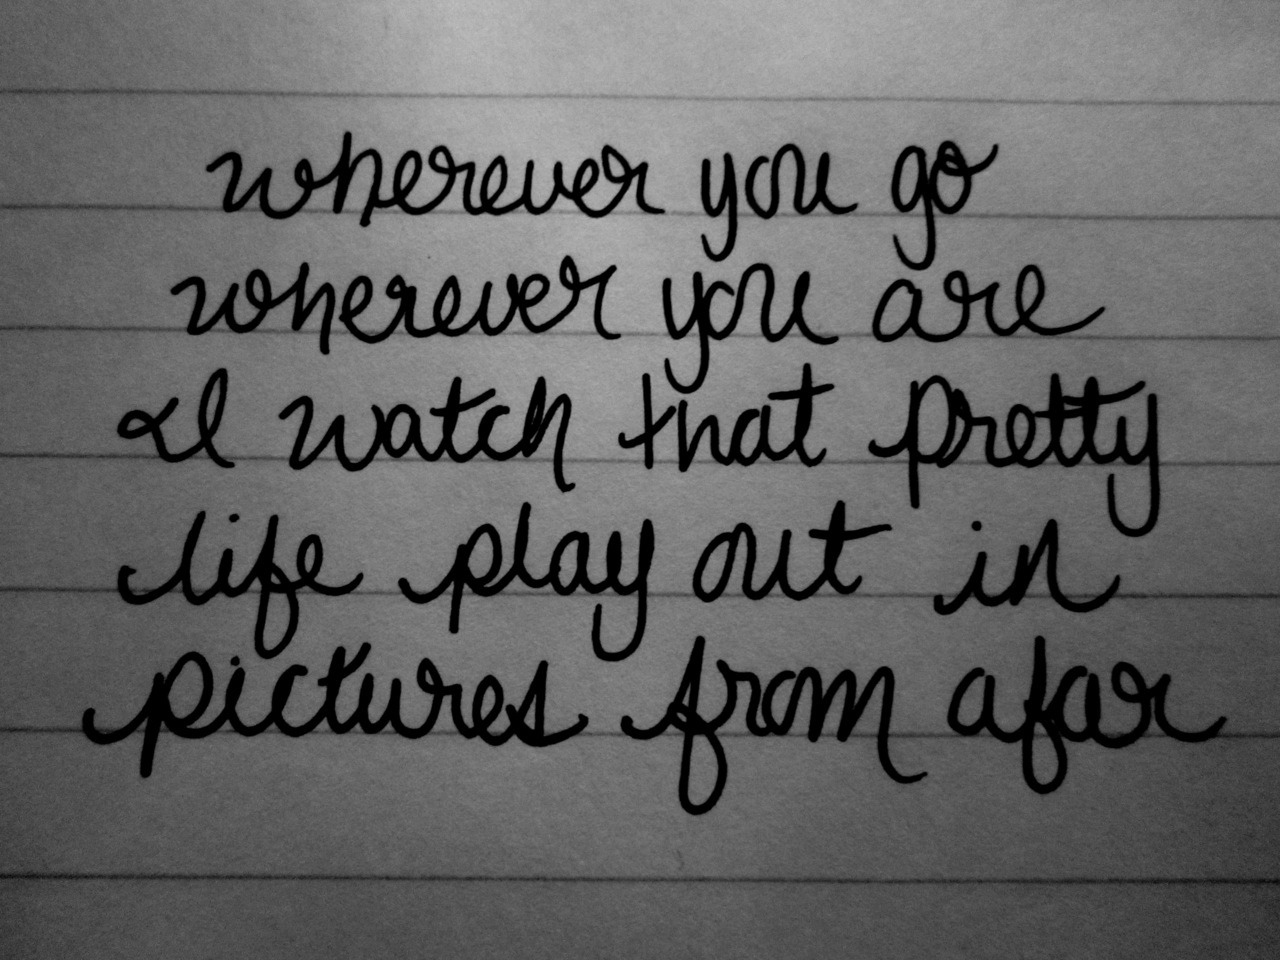 wherever you go
wherever you are
I watch that pretty
life play out in
pictures from afar